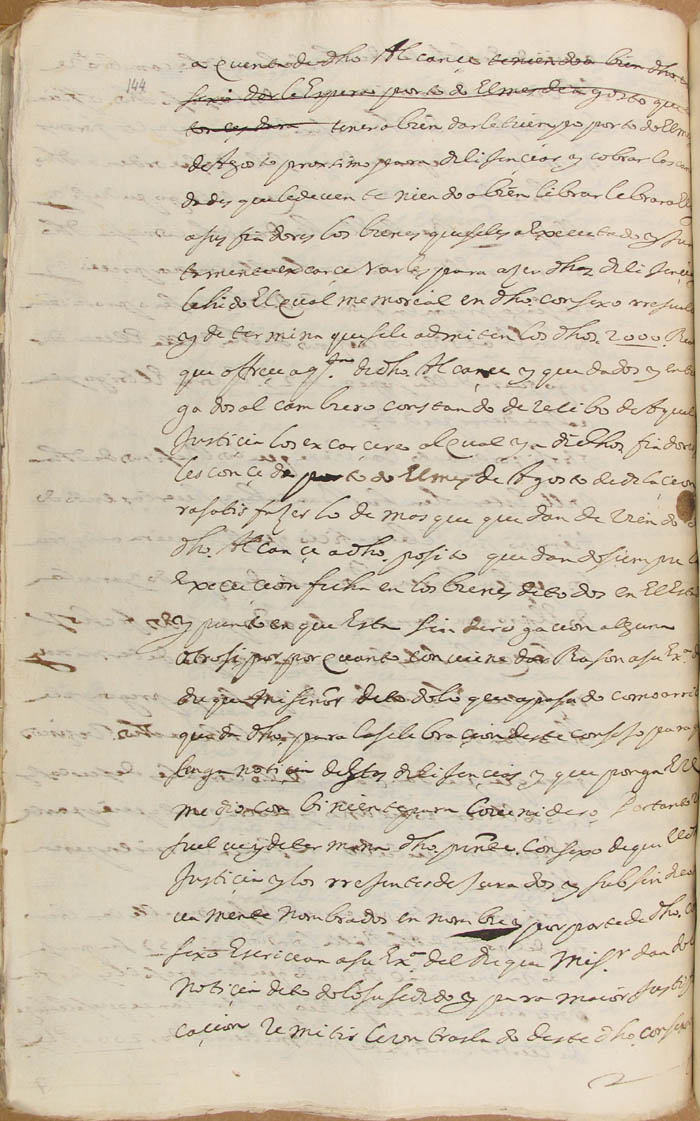 144
a quenta de dho Alcançe teniendo a bien dho
sexo darle Espera por todo El mes de agosto que
tener a bien darle tiempo por todo El m
de Agosto proximo para dilisenciar y cobrar las can
dades que le deven teniendo a bien librar
a sus fiadores los bienes que se les a Executado y Jun
tamente excarcerarles para aser dhas dilisençi
lehido El qual memorial en dho consexo rresuel
y determina que se le admiten los dhos 2000 R
que offreçe a qta de dho Alcançe y que dados y entre
gados al cambrero constando de rezibo de Aquel
Justicia los excarcere al qual y a dichos fiadores
les conçeda por todo El mes de Agosto de dilacion
ra satisfazer lo demas que quedan deviendo
dho Alcançe a dho posito quedando siempre
Execucion fecha en los bienes de todos en El Est
y punto en que Esta sin derogacion alguna
otrosi por quanto conviene dar Rason a su Exa
duque mi señor de todo lo que a pasado como arri
queda dho para la selebracion deste consejo para
tenga noticia destas dilisençias y que ponga El re
medio conbiniente para Portanto
suelve y determina dho punte. Consexo de que
Justicia y los rresentes de Jurados y subsindico
vamente nombrados en nombre y por parte de dho
sexo Escrivan a su Exa del duque Mi Sr dando
notiçia de todo lo susedido y para maior Justifi
cacion remitirle con traslado deste dho consexo